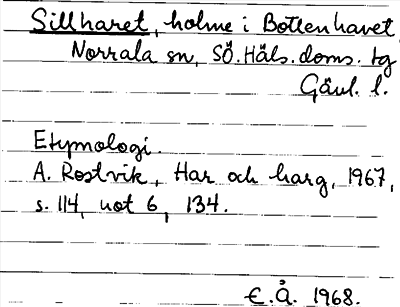 Sillharet, holme i Bottenhavet,
Norrala sn, SÖ. Häls. doms. tg
Gävl. l.
Etymologi.
A. Rostvik, Har och harg, 1967,
s. 114, not 6, 134.
E.Å. 1968.